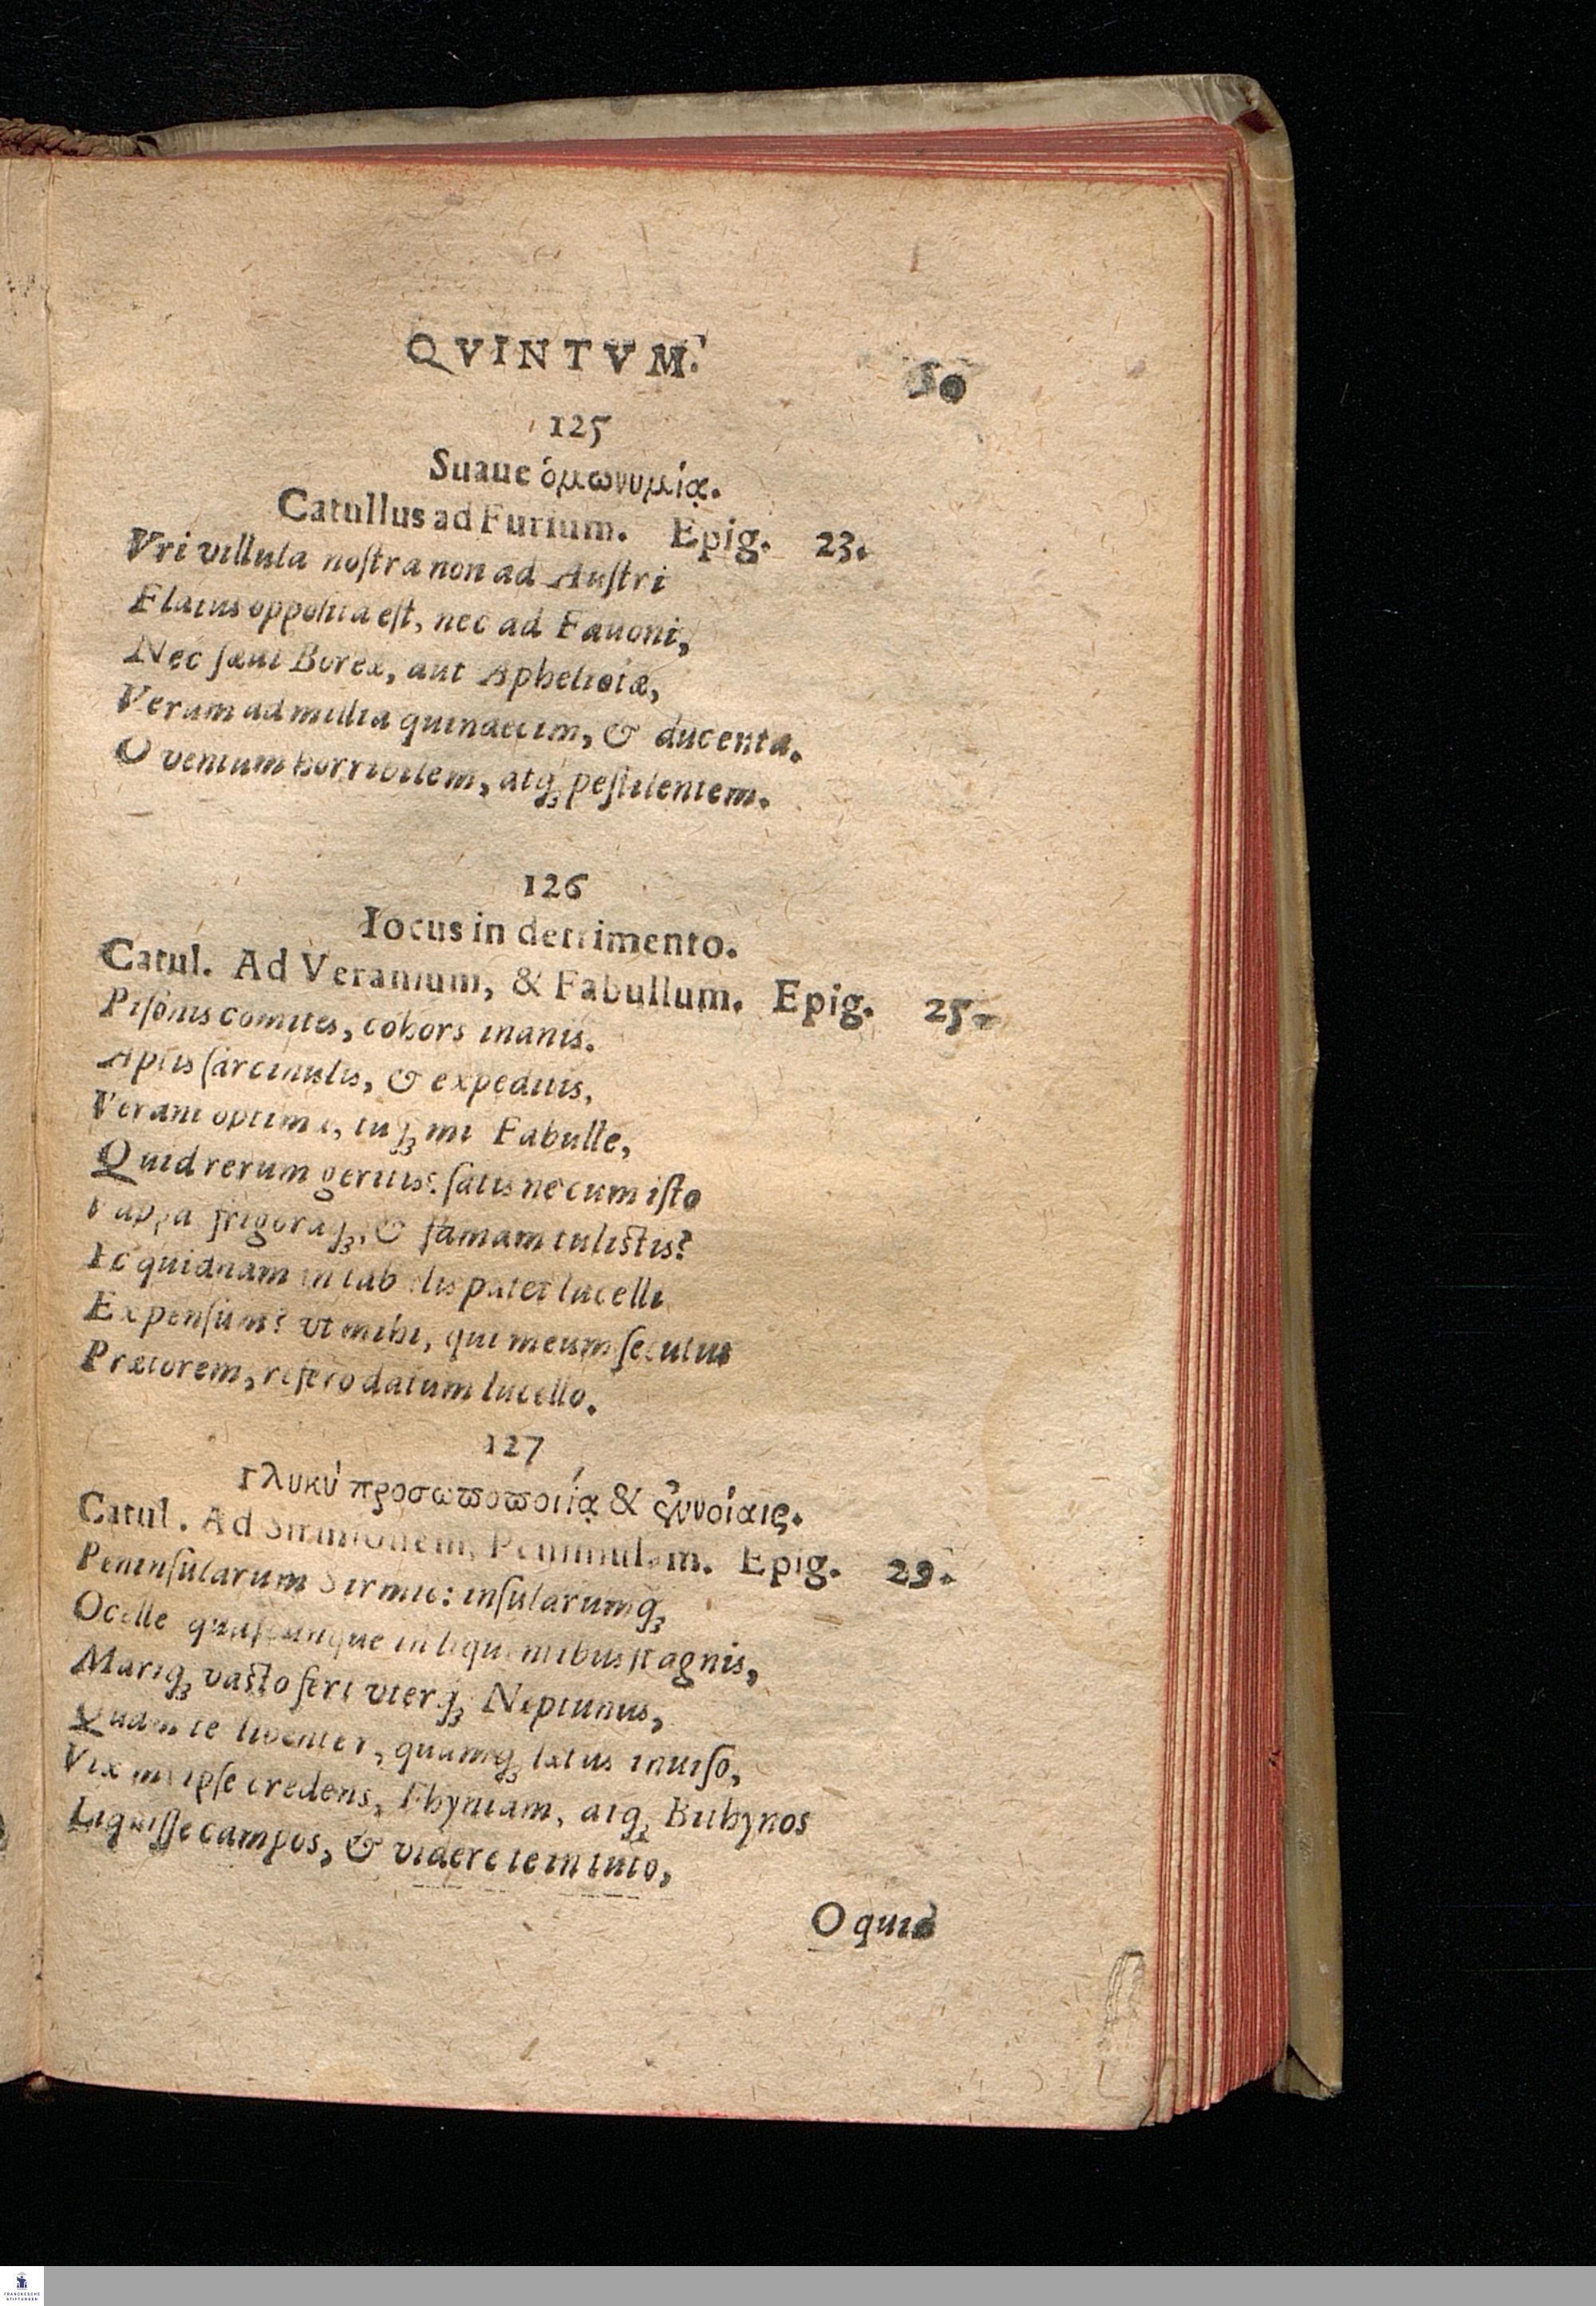 QVINTVM.
50
125
Suaue ὁμωνυμίᾳ.
Catullus ad Furium. Epig. 23.
Vri villula nostra non ad Austri
Flatus opposita est, nec ad Fauoni,
Nec sæui Boreæ, aut Apheliotæ,
Verum ad millia quindecim, & ducenta.
O ventum horribilem, atq; pestilentem.
126
Iocus in detrimento.
Catul. Ad Veranium, & Fabullum. Epig. 25.
Pisonis comites, cohors inanis.
Aptis sarcinulis, & expeditis,
Verani optime, tuq; mi Fabulle,
Quid rerum geritis? satis ne cum isto
Vappa frigoraq;, & famam tulistis?
Ec quidnam in tabulis patet lucelli
Expensum? vt mihi, qui meum secutus
Prætorem, refero datum lucello.
127
Γλυκὺ προσωποποιίᾳ & ἐννοίαις.
Catul. Ad Sirmionem, Peninsulam. Epig. 29.
Peninsularum Sirmio: insularumq;
Ocelle quascunque in liquentibus stagnis,
Mariq; vasto fert vterq; Neptunus,
Quam te libenter, quamq; lætus inuiso,
Vix mi ipse credens, Thyniam, atq; Bithynos
Liquisse campos, & videre te in tuto,
O quid